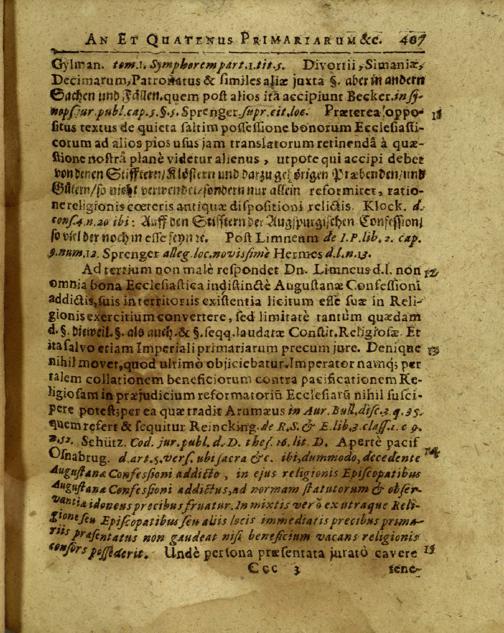 AN ET QUATENUS PRIMARIARUM &c. 407
Gylman. tom. 1. Symphorem part. 1. tit. 5. Divortii, Simaniæ,
Decimarum, Patronatus & similes aliæ juxta §. aber in andern
Sachen und Fällen. quem post alios itâ accipiunt Becker. in sy-
nops. jur. publ. cap. 5. §. 5. Sprenger. supr. cit. loc. Præterea oppo-
situs textus de quieta saltim possessione bonorum Ecclesiasti-
corum ad alios pios usus jam translatorum retinendâ à quæ-
stione nostrâ planè videtur alienus, utpote qui accipi debet
von denen Stifftern / Klöstern und darzu gehörigen Præbenden / und
Gütern / so nicht verwendet / sondern nur allein reformiret, ratio-
ne religionis cœteris antiquæ dispositioni relictis. Klock. d.
cons. 4. n. 20 ibi: Auff den Stifftern der Augspurgischen Confession /
so viel der noch in esse seyn ꝛc. Post Limneum de I. P. lib. 2. cap.
9. num. 12. Sprenger alleg. loc. novissimè Hermes d. l. n. 13.
Ad tertium non malè respondet Dn. Limneus d. l. non 12
omnia bona Ecclesiastica indistinctè Augustanæ Confessioni
addictis, suis in territoriis existentia licitum esse suæ in Reli-
gionis exercitium convertere, sed limitatè tantùm quædam
d. §. dieweil. §. als auch. & §. seqq. laudatæ Constit. Religiosæ. Et
ita salvo etiam Imperiali primariarum precum jure. Denique 13
nihil movet, quod ultimò objiciebatur. Imperator namq; per
talem collationem beneficiorum contra pacificationem Re-
ligiosam in præjudicium reformatioru̅ Ecclesiaru̅ nihil susci-
pere potest; per ea quæ tradit Arumæus in Aur. Bull. disc. 3. q. 25.
quem refert & sequitur Reincking. de R. S. & E. lib. 3. class. 1. c 9.
n. 52. Schütz. Cod. jur. publ. d. D. thes. 16. lit. D. Apertè pacif
Osnabrug. d. art. 5. vers. ubi sacra &c. ibi, dummodo, decedente 14
Augustanæ Confessioni addicto, in ejus religionis Episcopatibus
Augustanæ Confessioni addictus, ad normam statutorum & obser-
vantiæ idoneus precibus fruatur. In mixtis verò ex utraque Reli-
gione seu Episcopatibus seu aliis locis immediatis precibus prima-
riis præsentatus non gaudeat nisi beneficium vacans religionis
consors possederit. Undè persona præsentata jurató cavere 15
Ccc 3 tene-